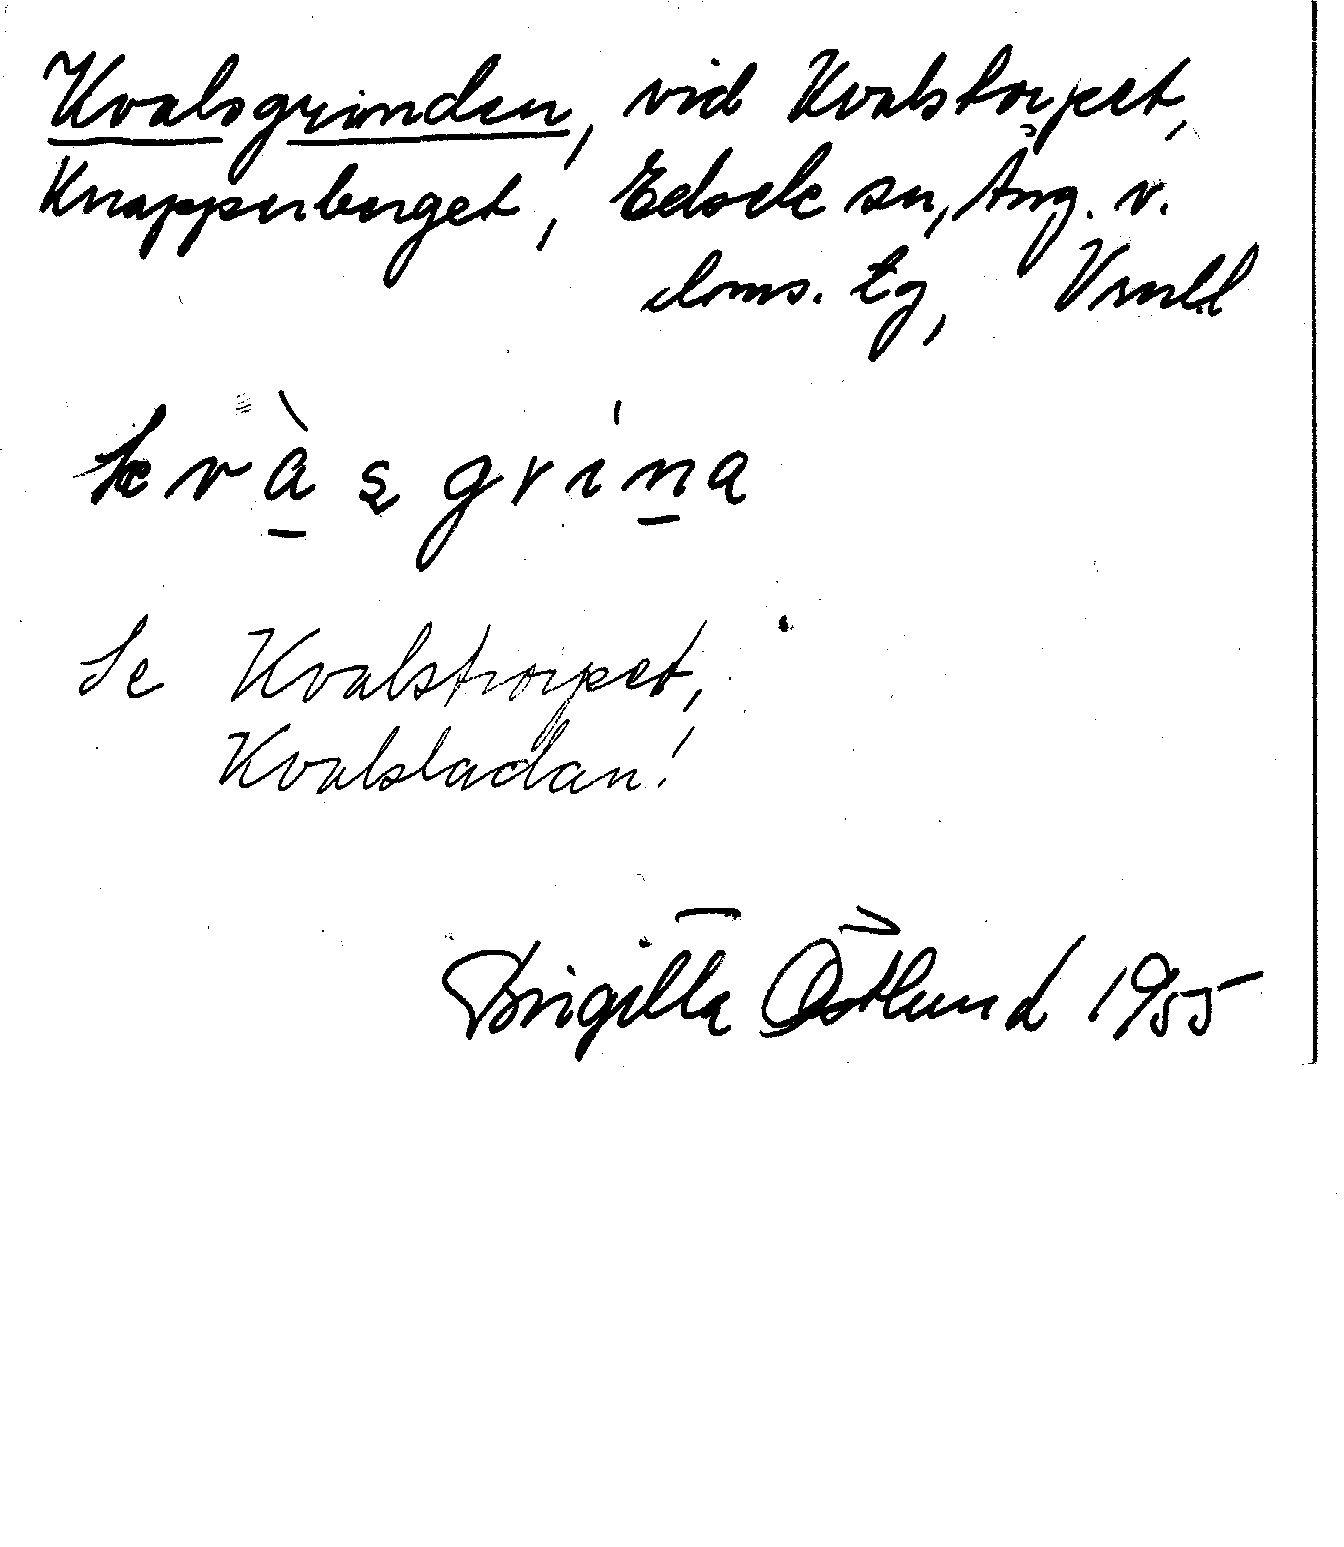 Kvalsgrinden, vid Kvalstorpet,
Knapperberget, Edsele sn, Ång. v.
doms. tg, Vrnld
kvàsgrína
Se Kvalstorpet,
Kvalsladan!
Birgitta Östlund 1955